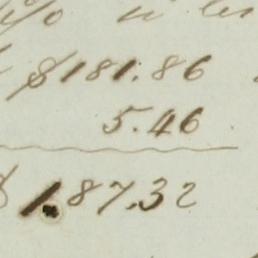 $181.86
5.46
$187.32